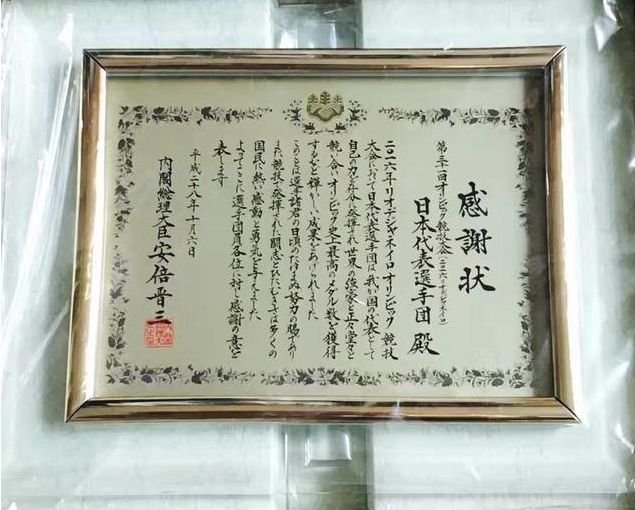 感謝状
第三十一回オリンピック競技大会(二〇一六/リオデジャネイロ)
日本代表選手団 殿
二〇一六年リオデジャネイロオリンピック競技
大会において日本代表選手団は我が国の代表として
自己の力を存分に発揮され世界の強豪と正々堂々と
競い合いオリンピック史上最高のメダル数を獲得
するなど輝かしい成果をあげられました
このことは選手諸君の日頃のたゆまぬ努力の賜であり
また競技で発揮された闘志とひたむきさは多くの
国民に熱い感動と勇気を与えました
よってここに選手団員各位に対し感謝の意を
表します
平成二十八年十月六日
内閣総理大臣 安倍晋三